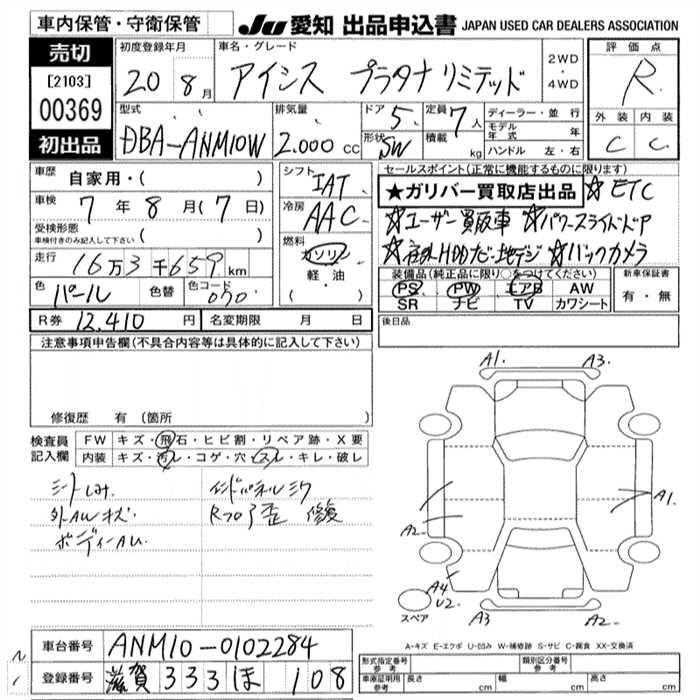 車内保管・守衛保管
JU 愛知 出品申込書 JAPAN USED CAR DEALERS ASSOCIATION
売切
[2103]
00369
初出品
初度登録年月
20 8月
車名・グレード
アイシス プラタナリミテッド
2WD
・
4WD
評価点
R
外装 内装
C C
型式
DBA-ANM10W
排気量
2.000 cc
ドア 5 定員 7人
形状 SW 積載 kg
ディーラー・並行
モデル年式 年
ハンドル 左・右
車歴 自家用・( )
車検 7年8月(7日)
受検形態
車検付きのみ記入して下さい ( )
走行 16万3千659km
色 パール 色替 色コード 070
シフト IAT
冷房 AAC
燃料 ガソリン
軽・油
・( )
セールスポイント(正常に機能するものに限ります)
★ガリバー買取店出品 ☆ETC
☆ユーザー買取車 ☆パワースライドドア
☆社外HDDナビ・地デジ ☆バックカメラ
装備品(純正品に限り○をつけてください)
PS PW エアB AW
SR ナビ TV カワシート
新車保証書
有・無
R券 12,410円 名変期限 月 日
後日品
注意事項申告欄(不具合内容等は具体的に記入して下さい)
修復歴 有(箇所
検査員記入欄
FW キズ・飛石・ヒビ割・リペア跡・X要
内装 キズ・汚レ・コゲ・穴・スレ・キレ・破レ
シートしみ インドパネルミク
外AWキズ Rフロア歪 修復
ボディーAU
A1 A3
A2 A1
A4
U2
スペア A3 A2
A-キズ E-エクボ U-凹み W-補修跡 S-サビ C-腐食 XX-交換済
車台番号 ANM10-0102284
登録番号 滋賀 333 ほ 108
型式指定番号
参考
類別区分番号
参考
車庫証明用
参考
長さ cm 幅 cm 高さ cm